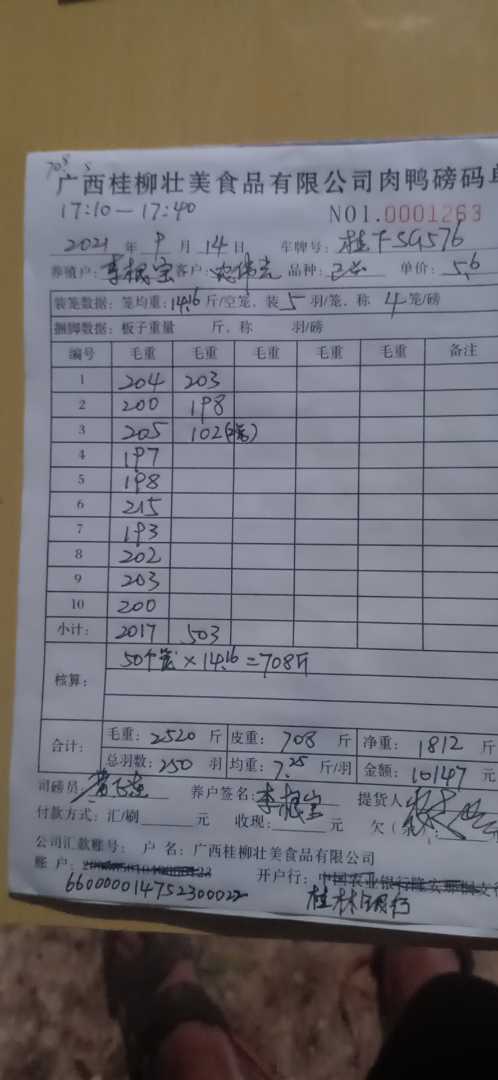 广西桂柳壮美食品有限公司肉鸭磅码单
17:10—17:40 NO1.0001263
2021年9月14日 车牌号:桂F5G576
养殖户:李根宝 客户: 品种: 单价:5.6
装笼数据:笼均重:14.16斤/空笼,装5羽/笼,称4笼/磅
捆脚数据:板子重量 斤,称 羽/磅
编号 毛重 毛重 毛重 毛重 毛重 备注
1 204 203
2 200 198
3 205 102(2笼)
4 197
5 198
6 215
7 193
8 202
9 203
10 200
小计: 2017 503
核算: 50个笼×14.16=708斤
合计: 毛重:2520斤 皮重:708斤 净重:1812斤
总羽数:250羽 均重:7.25斤/羽 金额:10147元
司磅员: 养户签名:李根宝 提货人
付款方式:汇/刷 元 收现: 元 欠(
公司汇款账号: 户 名:广西桂柳壮美食品有限公司
账 户: 开户行:
660000014752300022 桂林银行